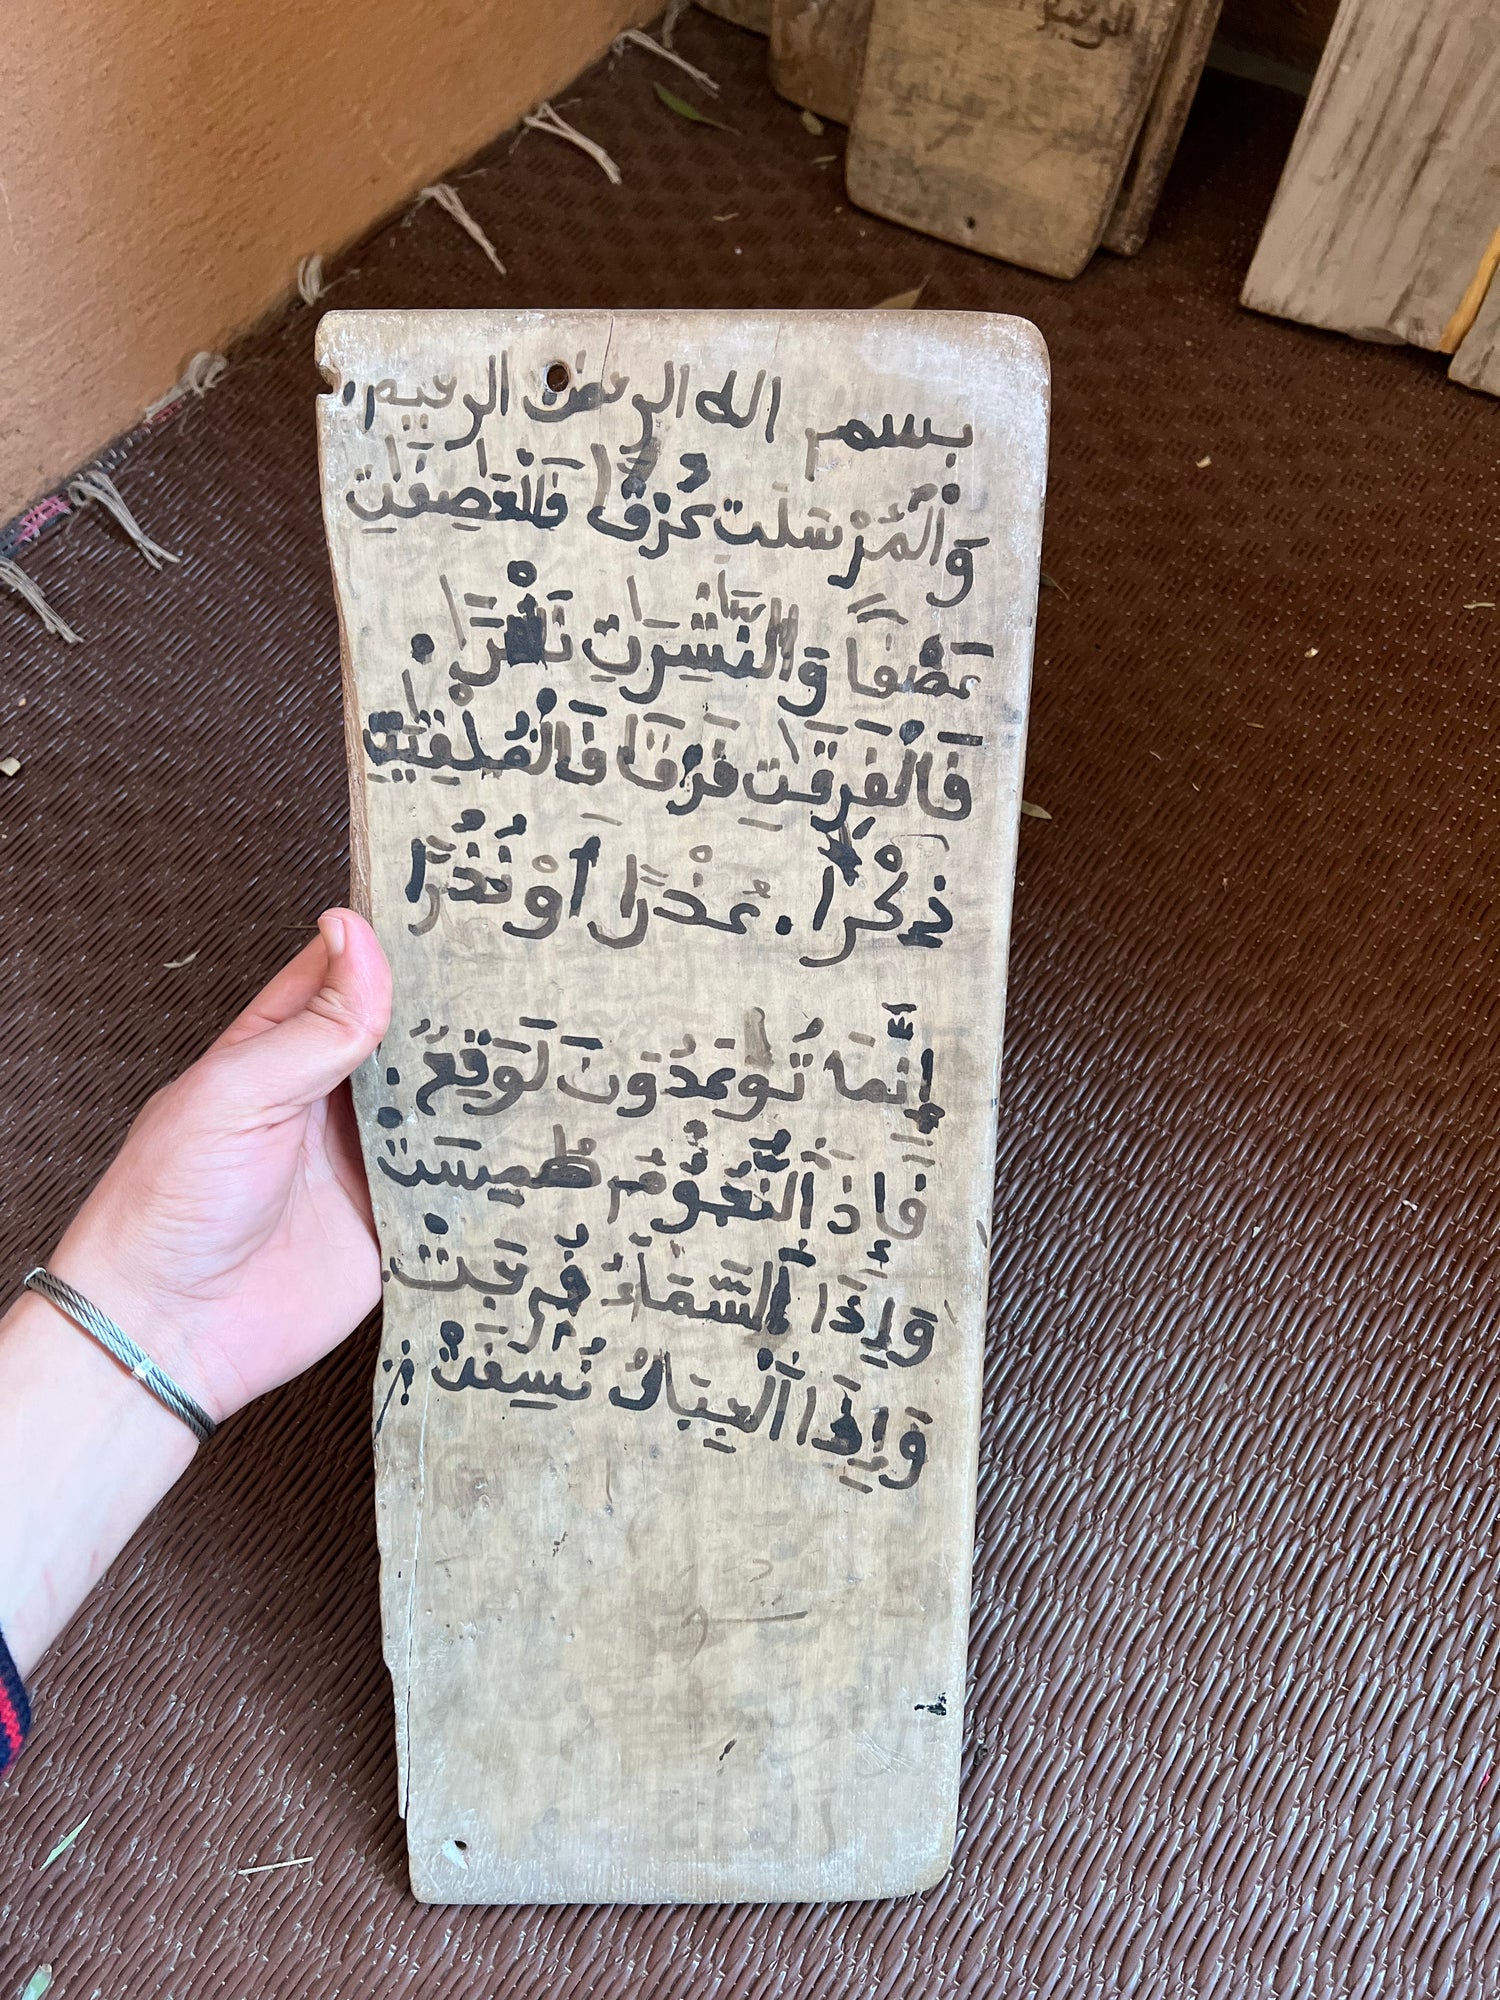 الرحيم
بسم الله الرحمن الرحيم.
وَالْمُرْسَلَتِ عُرْفًا فَالْعَصِفَتِ
عَصْفًا وَالنَّشِرَتِ نَشْرًا.
فَالْفَرِقَتِ فَرْقًا فَالْمُلْقِيَتِ
ذِكْرًا. عُذْرًا اَوْ نُذُرًا
إِنَّمَا تُوعَدُونَ لَوَقِعٌ.
فَإِذَا النُّجُومُ طُمِسَتْ
وَإِذَا السَّمَاءُ فُرِجَتْ.
وَإِذَا الْجِبَالُ نُسِفَتْ